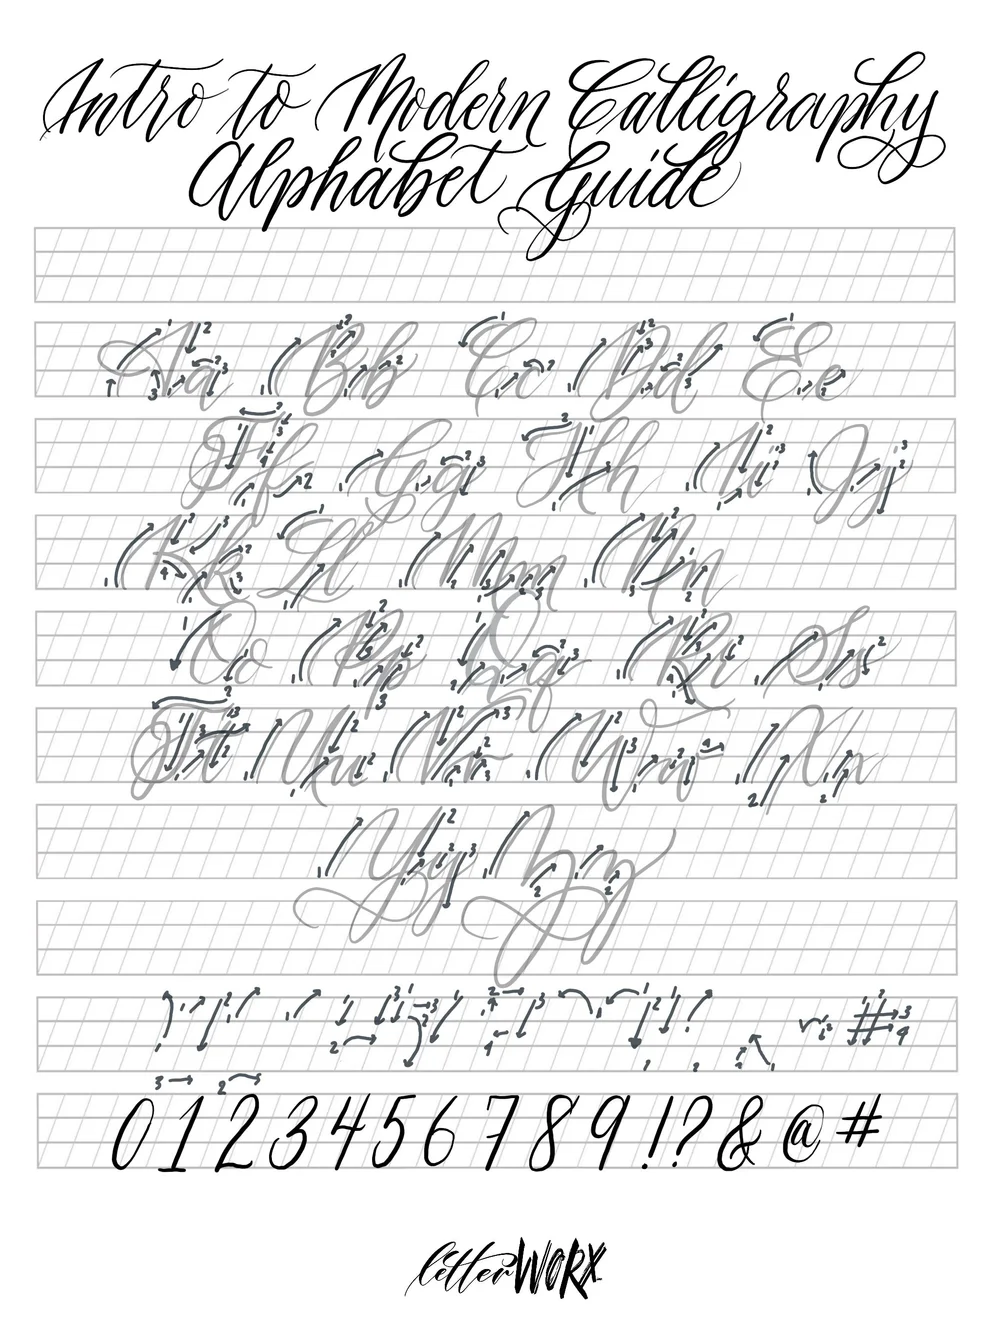 Intro to Modern Calligraphy
Alphabet Guide
Aa Bb Cc Dd Ee
Ff Gg Hh Ii Jj
Kk Ll Mm Nn
Oo Pp Qq Rr Ss
Tt Uu Vv Ww Xx
Yy Zz
0 1 2 3 4 5 6 7 8 9 ! ? & @ #
letterWORX